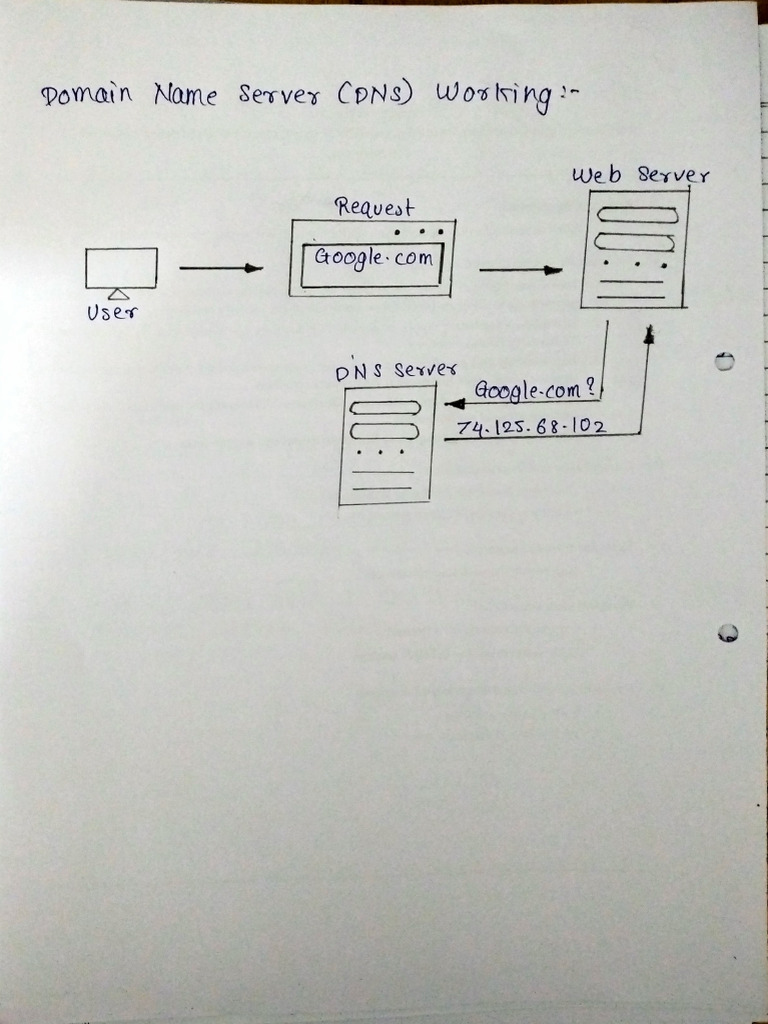 Domain Name Server (DNS) Working :-
Web Server
Request
Google.com
User
DNS Server
Google.com?
74.125.68.102